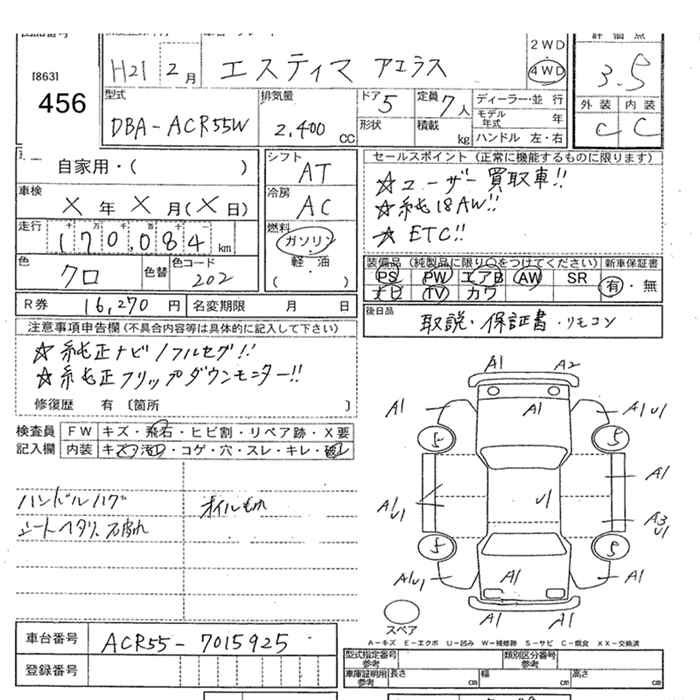 2WD
評価点
H21 2月 エスティマ アエラス
4WD
3.5
[863]
456
型式
排気量
ドア 5
定員 7人
ディーラー・並 行
外装 内装
DBA-ACR55W
2,400 CC
形状
積載 kg
モデル年式 年
ハンドル 左・右
C C
自家用・( )
シフト AT
セールスポイント (正常に機能するものに限ります)
☆ユーザー買取車!!
車検
X 年 X 月(X 日)
冷房 AC
☆純18AW!!
走行 170,084 km
燃料 ガソリン
☆ETC!!
軽・油
( )
色 クロ
色替
色コード 202
装備品 (純製品に限り○をつけてください)
新車保証書
PS PW エアB AW SR
有・無
ナビ TV カワ
R券 16,270円
名変期限 月 日
後日品 取説・保証書・リモコン
注意事項申告欄 (不具合内容等は具体的に記入して下さい)
☆純正ナビ/フルセグ!!
☆純正フリップダウンモニター!!
修復歴 有 [箇所 ]
検査員記入欄
FW キズ・飛石・ヒビ割・リペア跡・X要
内装 キズ・汚れ・コゲ・穴・スレ・キレ・破レ
ハンドルハゲ
オイルもれ
A1 A2
A1 A1 A1 U1
5 5
A1
A1 U1
U1
A3 U1
5 5
A1 U1 A1 A1
A1 A1
スペア
A-キズ E-エクボ U-凹み W-補修跡 S-サビ C-腐食 XX-交換済
車台番号 ACR55-7015925
登録番号
型式指定番号 参考
類別区分番号 参考
車庫証明用 参考
長さ cm
幅 cm
高さ cm